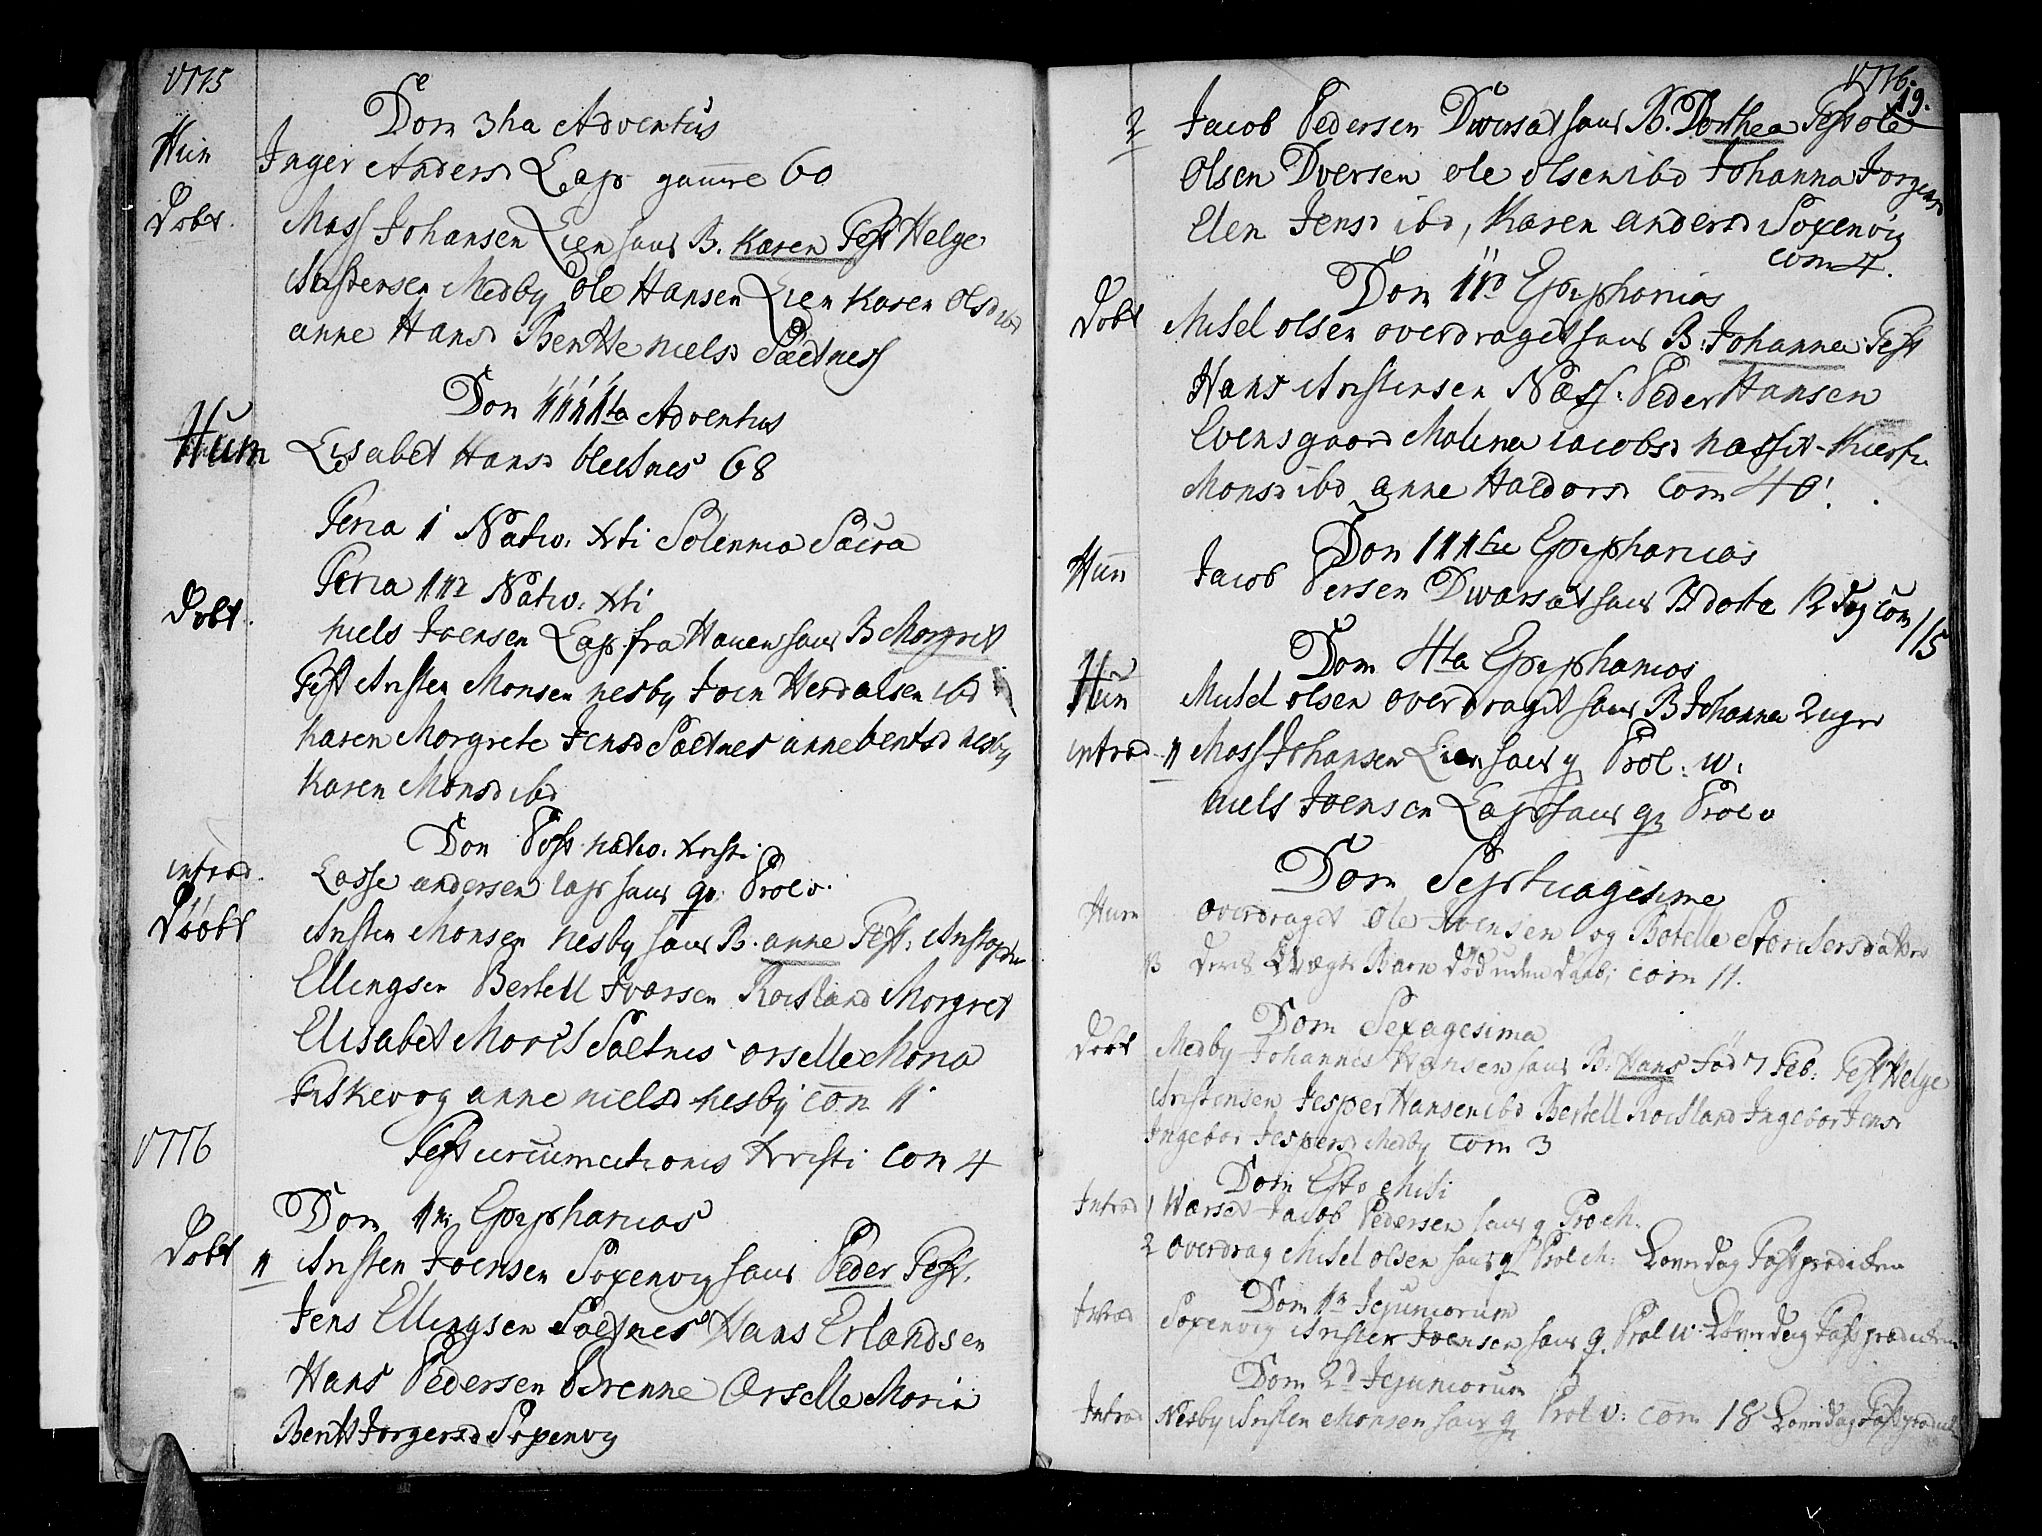 1775
Dom 3tia Adventus
Hum Inger Andersd Lap gamre 60
Døbt. Mass Johansen Lien haus B. Karen Test Helge
Kristensen Medby Ole Hansen Lien Karen Olsd ibd
anne Hansd Benthe nielsd Sætness
Dom 4ta Adventus
Hum Lisabet Hansd 68
Feria 1 Nativ. Xti Solennia Sacra
Feria 112 Nativ. Xti
Døbt. niels Joensen Lap fra Haven haus B Morgret
Test Kristen Monsen nesby Joen Herdalsen ibd
Karen Morgrete Jensd Sætnes anne bentsd nesby
Karen Monsd ibd
Dom Post nativ. Kristi
introd. Lasse andersen lap haus q. Prol v.
Døbt Kristen Monsen nesby haus B. anne Test.
Ellingsen Bertell Ivarsen Roesland Morgret
Elisabet Sætnes orselle Moria
Fiskevog anne nielsd nesby com 11
1776 Fest circumcitionis Kristi com 4
Dom 1mi Epiphanias
Døbt 11 Kristen Joensen Soxenvig haus Peder Test.
Jens Ellingsen Sætnes Hans Erlandsen
Hans Pedersen Brenne Orselle Moria
Berit Jorgensd Soxenvig
1776.
19.
2 Jacob Pedersen haus B. Dorthea Test ole
Olsen Dversen ole olsen ibd Johanna Jorgensd
Elen Jensd ibd, Karen andersd Soxenvig
com 4.
Dom 11d Epiphanias
Døbt Misel olsen overdraget haus B. Johanna Test
Hans Kristensen Næss. Peder Hansen
Evensgaard Malena iacobsd
Monsd ibd anne Haldorsd com 40.
Dom 111tie Epiphanias
Hum Jacob Persen haus B dotte 12 dag com 115
Dom 4ta Epiphanias
Hum Misel olsen overdraget haus B Johanna 2 uger
introd 11 Mass Johansen Lien haus q. Prol: v.
niels Joensen Lap haus q. Prol v
Dom Septuagesime
Hum overdraget Ole Ivensen og Botelle
B Deris Barn død uden daab; com 11.
Dom Sexagesima
Døbt Medby Johannes Hansen haus B: Hans fød 7 Feb: Test Helge
Kristensen Jesper Hansen ibd Bertell Roesland Ingebor Jensd
Ingebor Jespersd Medby com 3
Dom Esto Mihi
Introd 1 Jacob Pedersen haus q Prol
2 overdrag Misel olsen haus q Prol Løverdag
Dom 1m Jejuniorum
Introd Soxenvig Kristen Joensen haus q. Prol v. Løverdag
Dom 2d Jejuniorum
Introd Nesby Kristen Monsen haus q Prol v: com 18 Løverdag